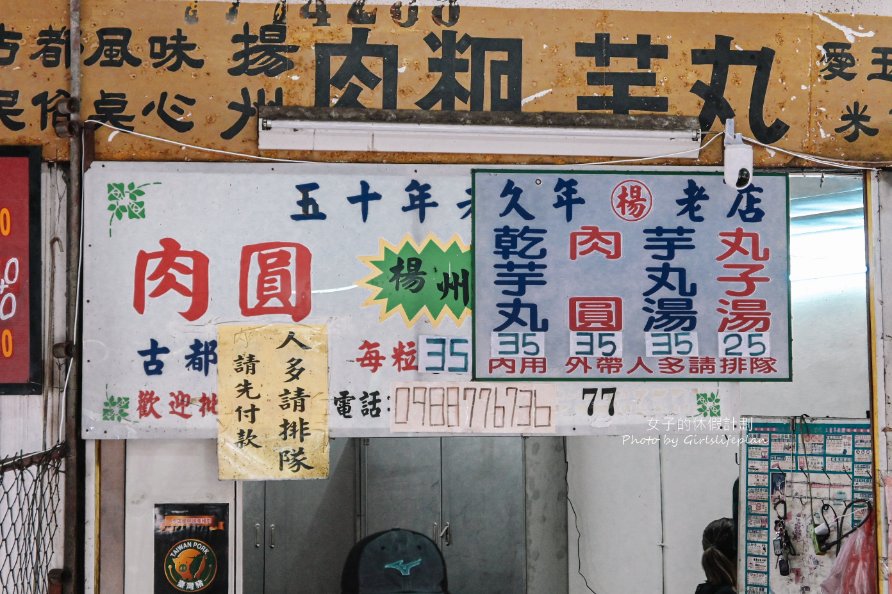 古都風味 揚 肉粄 芋丸 愛玉
民俗桌心 州 米
五十年老
肉圓 楊州
古都
每粒35
歡迎批
電話:0988776736
77
人多請排隊
請先付款
久年楊老店
乾芋丸 35
肉圓 35
芋丸湯 35
丸子湯 25
內用 外帶人多請排隊
TAIWAN PORK
臺灣豬
女子的休假計劃
Photo by Girlslifeplan